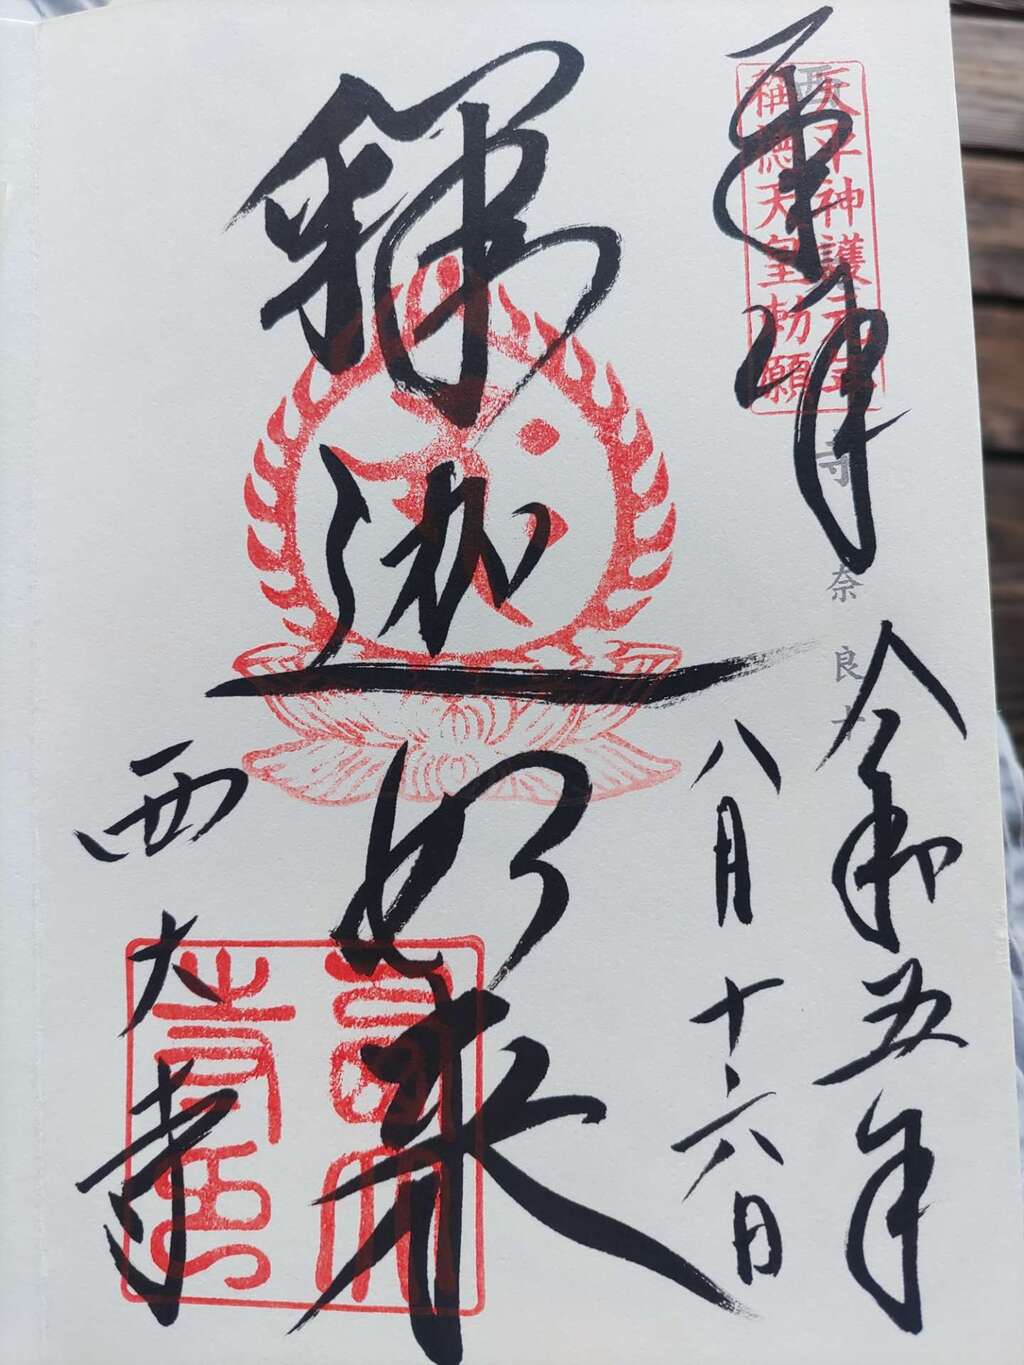 奉拝
天平神護元年
稱徳天皇勅願
西
寺
奈良
令和五年
八月十六日
釋迦如来
西大寺
西大寺印